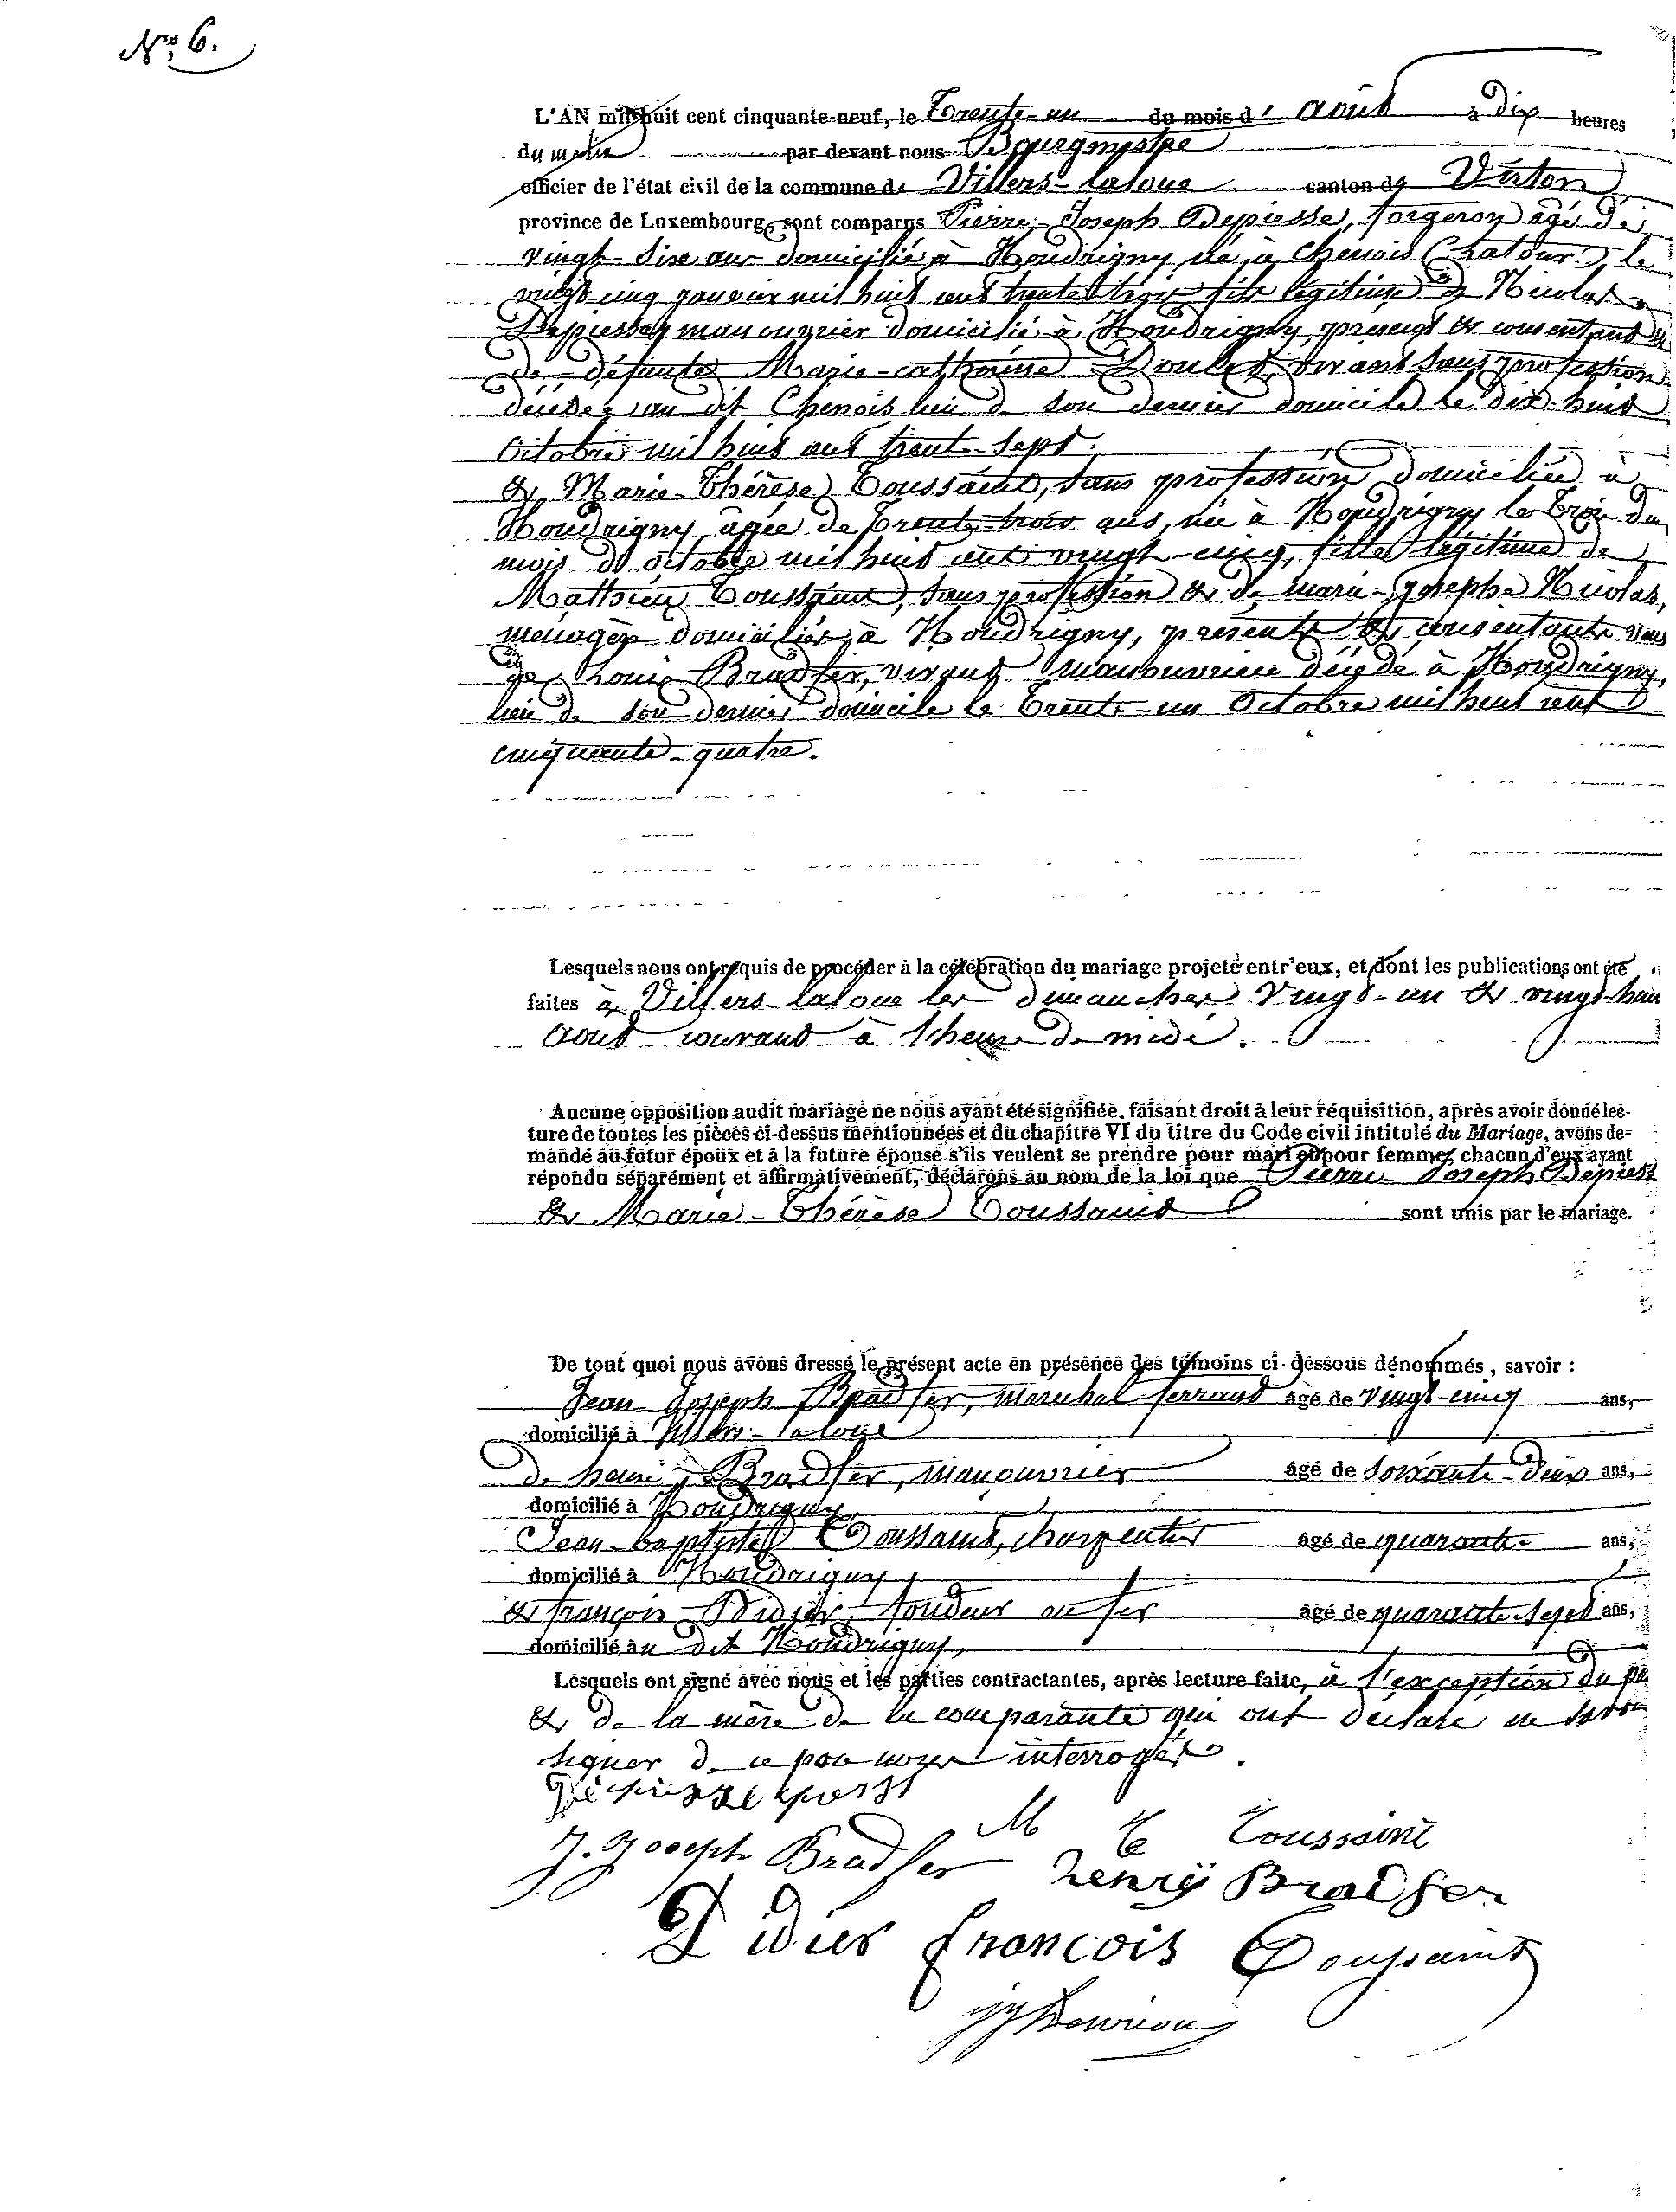 Nro 6.
L'AN mil huit cent cinquante-neuf, le Trente-un du mois d' août à dix heures
du matin par devant nous Bourgmestre
officier de l'état civil de la commune de Villers-laloue canton de Virton
province de Luxembourg, sont comparus Pierre-Joseph Depiesse, forgeron âgé de
vingt-six ans domicilié à Houdrigny né à Chenois (Latour) le
vingt-cinq janvier mil huit cent trente trois fils légitime de Nicolas
Depiesse, manouvrier domicilié à Houdrigny, présent & consentant &
de défunte Marie-catherine vivant sans profession
décédée au dit Chenois lieu de son dernier domicile le dix-huit
octobre mil huit cent trente-sept.
& Marie-Thérèse Toussaint, sans profession domiciliée à
Houdrigny âgée de trente-trois ans, née à Houdrigny le trois du
mois d'octobre mil huit cent vingt-cinq, fille légitime de
Mathieu Toussaint, sans profession & de marie-josephe Nicolas,
ménagère domiciliés à Houdrigny, présents & consentants veuve
de Louis Bradfer, vivant manouvrier décédé à Houdrigny,
lieu de son dernier domicile le trente-un octobre mil huit cent
cinquante-quatre.
Lesquels nous ont requis de procéder à la célébration du mariage projeté entr'eux, et dont les publications ont été
faites à Villers-laloue les dimanches vingt-un & vingt-huit
août courant à 1 heure de midi.
Aucune opposition audit mariage ne nous ayant été signifiée, faisant droit à leur réquisition, après avoir donné lec-
ture de toutes les pièces ci-dessus mentionnées et du chapitre VI du titre du Code civil intitulé du Mariage, avons de-
mandé au futur époux et à la future épouse s'ils veulent se prendre pour mari et pour femme, chacun d'eux ayant
répondu séparément et affirmativement, déclarons au nom de la loi que Pierre-Joseph Depiesse
& Marie-Thérèse Toussaint sont unis par le mariage.
De tout quoi nous avons dressé le présent acte en présence des témoins ci-dessous dénommés, savoir :
Jean Joseph Bradfer, maréchal ferrant âgé de vingt-cinq ans,
domicilié à Villers-laloue
de henri Bradfer, manouvrier âgé de soixante-deux ans,
domicilié à Houdrigny,
Jean-baptiste Toussaint, charpentier âgé de quarante- ans,
domicilié à Houdrigny,
& françois Didier, fondeur en fer âgé de quarante-sept ans,
domicilié au dit Houdrigny,
Lesquels ont signé avec nous et les parties contractantes, après lecture faite, à l'exception du père
& de la mère de la comparante qui ont déclaré ne savoir
signer de ce par nous interrogés.
Depiesse
M T Toussaint
J. Joseph Bradfer henry Bradfer
Didier françois Toussaint